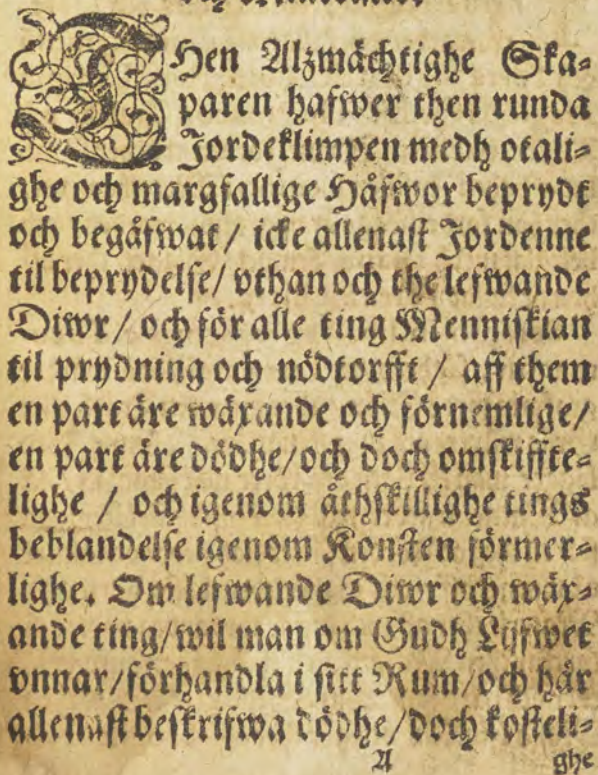 THen Alzmächtighe Ska⸗
paren hafwer then runda
Jordeklimpen medh otali⸗
ghe och margfallige Håfwor beprydt
och begåfwat / icke allenast Jordenne
til beprydelse / vthan och the lefwande
Diwr / och för alle ting Menniskian
til prydning och nödtorfft / aff them
en part äre wäxande och förnemlige /
en part äre dödhe / och doch omskiffte⸗
lighe / och igenom åthskillighe tings
beblandelse igenom Konsten förmer⸗
lighe. Om lefwande Diwr och wäx⸗
ande ting / wil man om Gudh Lijfwet
vnnar / förhandla i sitt Rum / och här
allenast beskrifwa dödhe / doch kosteli⸗
A ghe